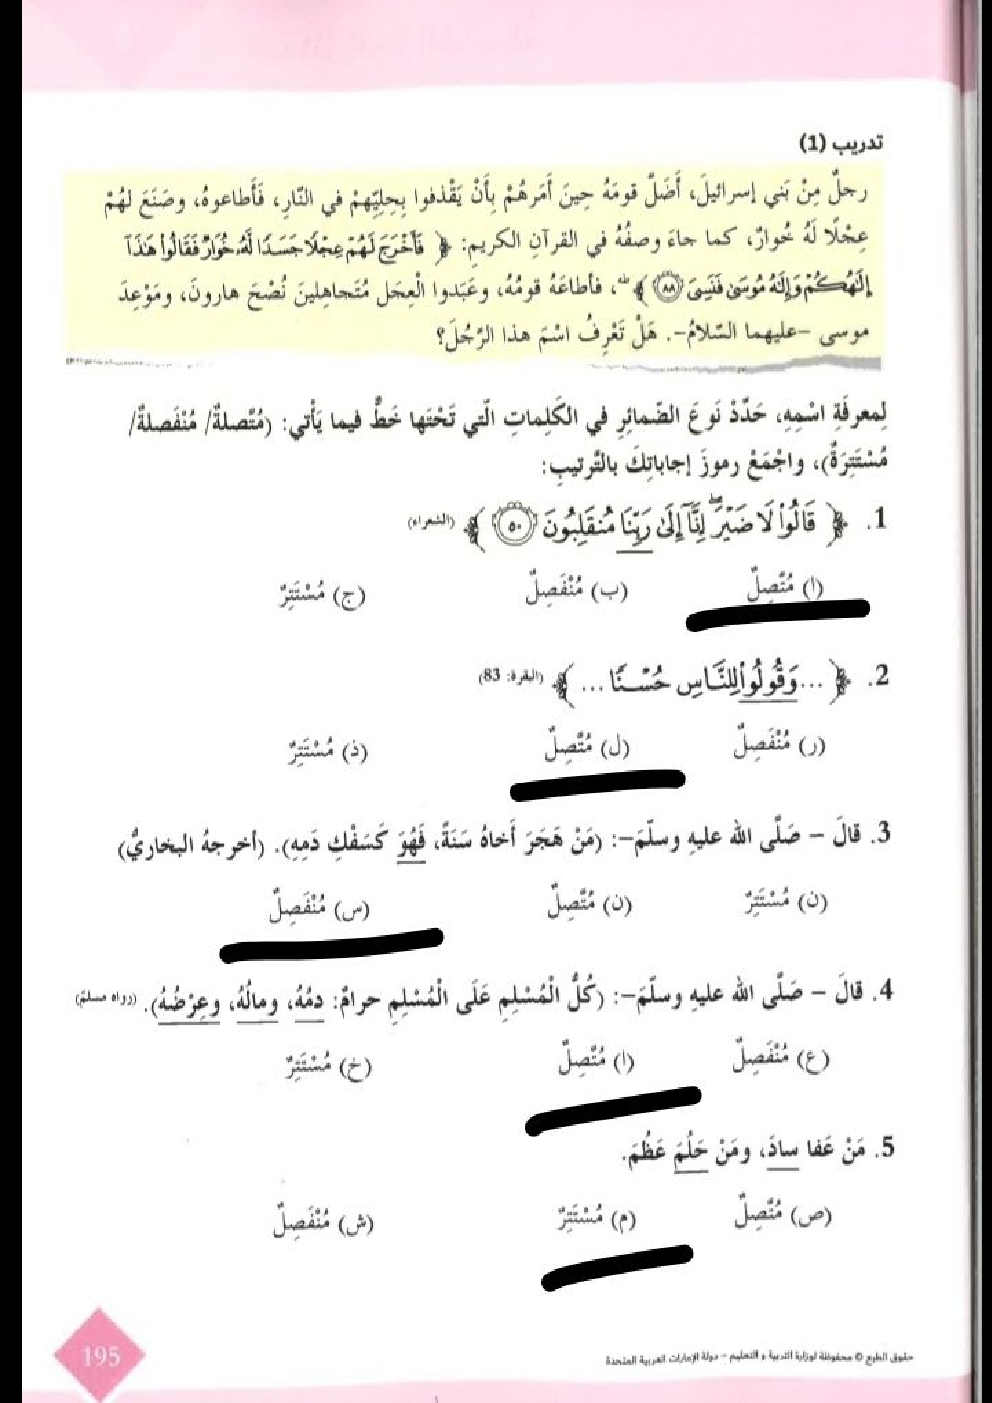 تدريب (1)
رجلٌ مِنْ بَني إسرائيلَ، أَضَلَّ قومَهُ حِينَ أَمَرهُمْ بِأَنْ يَقْذفوا بِحِليِّهِمْ في النّارِ، فَأَطاعوهُ، وصَنَعَ لهُمْ
عِجْلًا لَهُ خُوارٌ، كما جاءَ وصفُهُ في القرآنِ الكريمِ: ﴿ فَأَخْرَجَ لَهُمْ عِجْلًا جَسَدًا لَّهُۥ خُوَارٌ فَقَالُوا۟ هَٰذَآ
إِلَٰهُكُمْ وَإِلَٰهُ مُوسَىٰ فَنَسِىَ ﴿٨٨﴾ ﴾ طه، فأطاعَهُ قومُهُ، وعَبَدوا الْعِجَل مُتَجاهِلينَ نُصْحَ هارونَ، ومَوْعِدَ
موسى -عليهما السّلامُ-. هَلْ تَعْرِفُ اسْمَ هذا الرَّجُلَ؟
لِمعرفَةِ اسْمِهِ، حَدِّدْ نَوعَ الضّمائرِ في الكَلِماتِ الّتي تَحْتَها خَطٌّ فيما يَأْتي: (مُتَّصلةٌ/ مُنْفَصلةٌ/
مُسْتَتِرَةٌ)، واجْمَعْ رموزَ إجاباتِكَ بالتَّرتيبِ:
1. ﴿ قَالُوا۟ لَا ضَيْرَ ۖ إِنَّآ إِلَىٰ رَبِّنَا مُنقَلِبُونَ ﴿٥٠﴾ ﴾ (الشعراء)
(ا) مُتَّصِلٌ (ب) مُنْفَصِلٌ (ج) مُسْتَتِرٌ
2. ﴿ ... وَقُولُوا۟ لِلنَّاسِ حُسْنًا ... ﴾ (البقرة: 83)
(ر) مُنْفَصِلٌ (ل) مُتَّصِلٌ (ذ) مُسْتَتِرٌ
3. قالَ - صَلَّى الله عليهِ وسلّمَ-: (مَنْ هَجَرَ أَخاهُ سَنَةً، فَهُوَ كَسَفْكِ دَمِهِ). (أخرجهُ البخاريُّ)
(ن) مُسْتَتِرٌ (ن) مُتَّصِلٌ (س) مُنْفَصِلٌ
4. قالَ - صَلَّى الله عليهِ وسلّمَ-: (كُلُّ الْمُسْلِمِ عَلَى الْمُسْلِمِ حرامٌ: دمُهُ، ومالُهُ، وعِرْضُهُ). (رواه مسلمٌ)
(ع) مُنْفَصِلٌ (ا) مُتَّصِلٌ (خ) مُسْتَتِرٌ
5. مَنْ عَفا سادَ، ومَنْ حَلُمَ عَظُمَ.
(ص) مُتَّصِلٌ (م) مُسْتَتِرٌ (ش) مُنْفَصِلٌ
حقوق الطبع © محفوظة لوزارة التربية و التعليم - دولة الإمارات العربية المتحدة
195